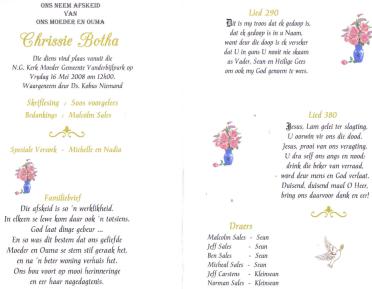 ONS NEEM AFSKEID
VAN
ONS MOEDER EN OUMA
Chrissie Botha
Die diens vind plaas vanuit die
N.G. Kerk Moeder Gemeente Vanderbijlpark op
Vrydag 16 Mei 2008 om 12h00.
Waargeneem deur Ds. Kobus Niemand
Skriflesing : Soos voorgelees
Bedankings : Malcolm Sales
Spesiale Versoek - Michelle en Nadia
Familiebrief
Die afskeid is so 'n werklikheid.
In elkeen se lewe kom daar ook 'n totsiens.
God laat dinge gebeur ...
En so was dit bestem dat ons geliefde
Moeder en Ouma se stem stil geraak het.
en na 'n beter woning verhuis het.
Ons bou voort op mooi herinneringe
en eer haar nagedagtenis.
Lied 290
Dit is my troos dat ek gedoop is,
dat ek gedoop is in u Naam,
want deur die doop is ek verseker
dat U in guns U nooit nie skaam
as Vader, Seun en Heilige Gees
om ook my God genoem te wees.
Lied 380
Jesus, Lam gelei ter slagting.
U oorwin vir ons die dood.
Jesus, prooi van ons veragting.
U dra self ons angs en nood;
drink die beker van verraad,
word deur mens en God verlaat.
Duisend, duisend maal O Heer,
bring ons daarvoor dank en eer!
Draers
Malcolm Sales - Seun
Jeff Sales - Seun
Ben Sales - Seun
Micheal Sales - Seun
Jeff Carstens - Kleinseun
Norman Sales - Kleinseun